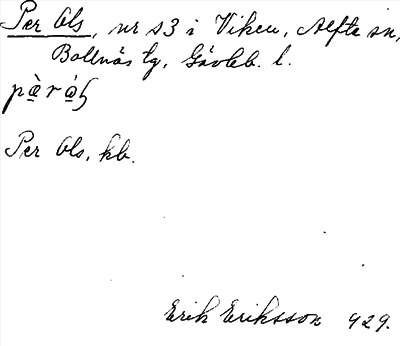 Per Ols, nr 13 i Viken, Alfta sn,
Bollnäs tg, Gävleb. l.
Per Ols, kb.
Erik Eriksson 929.